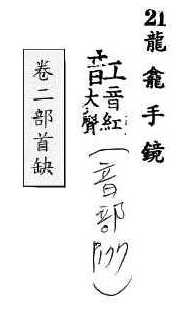 21 龍龕手鏡
音紅
大聲
(音部 )
卷二部首缺